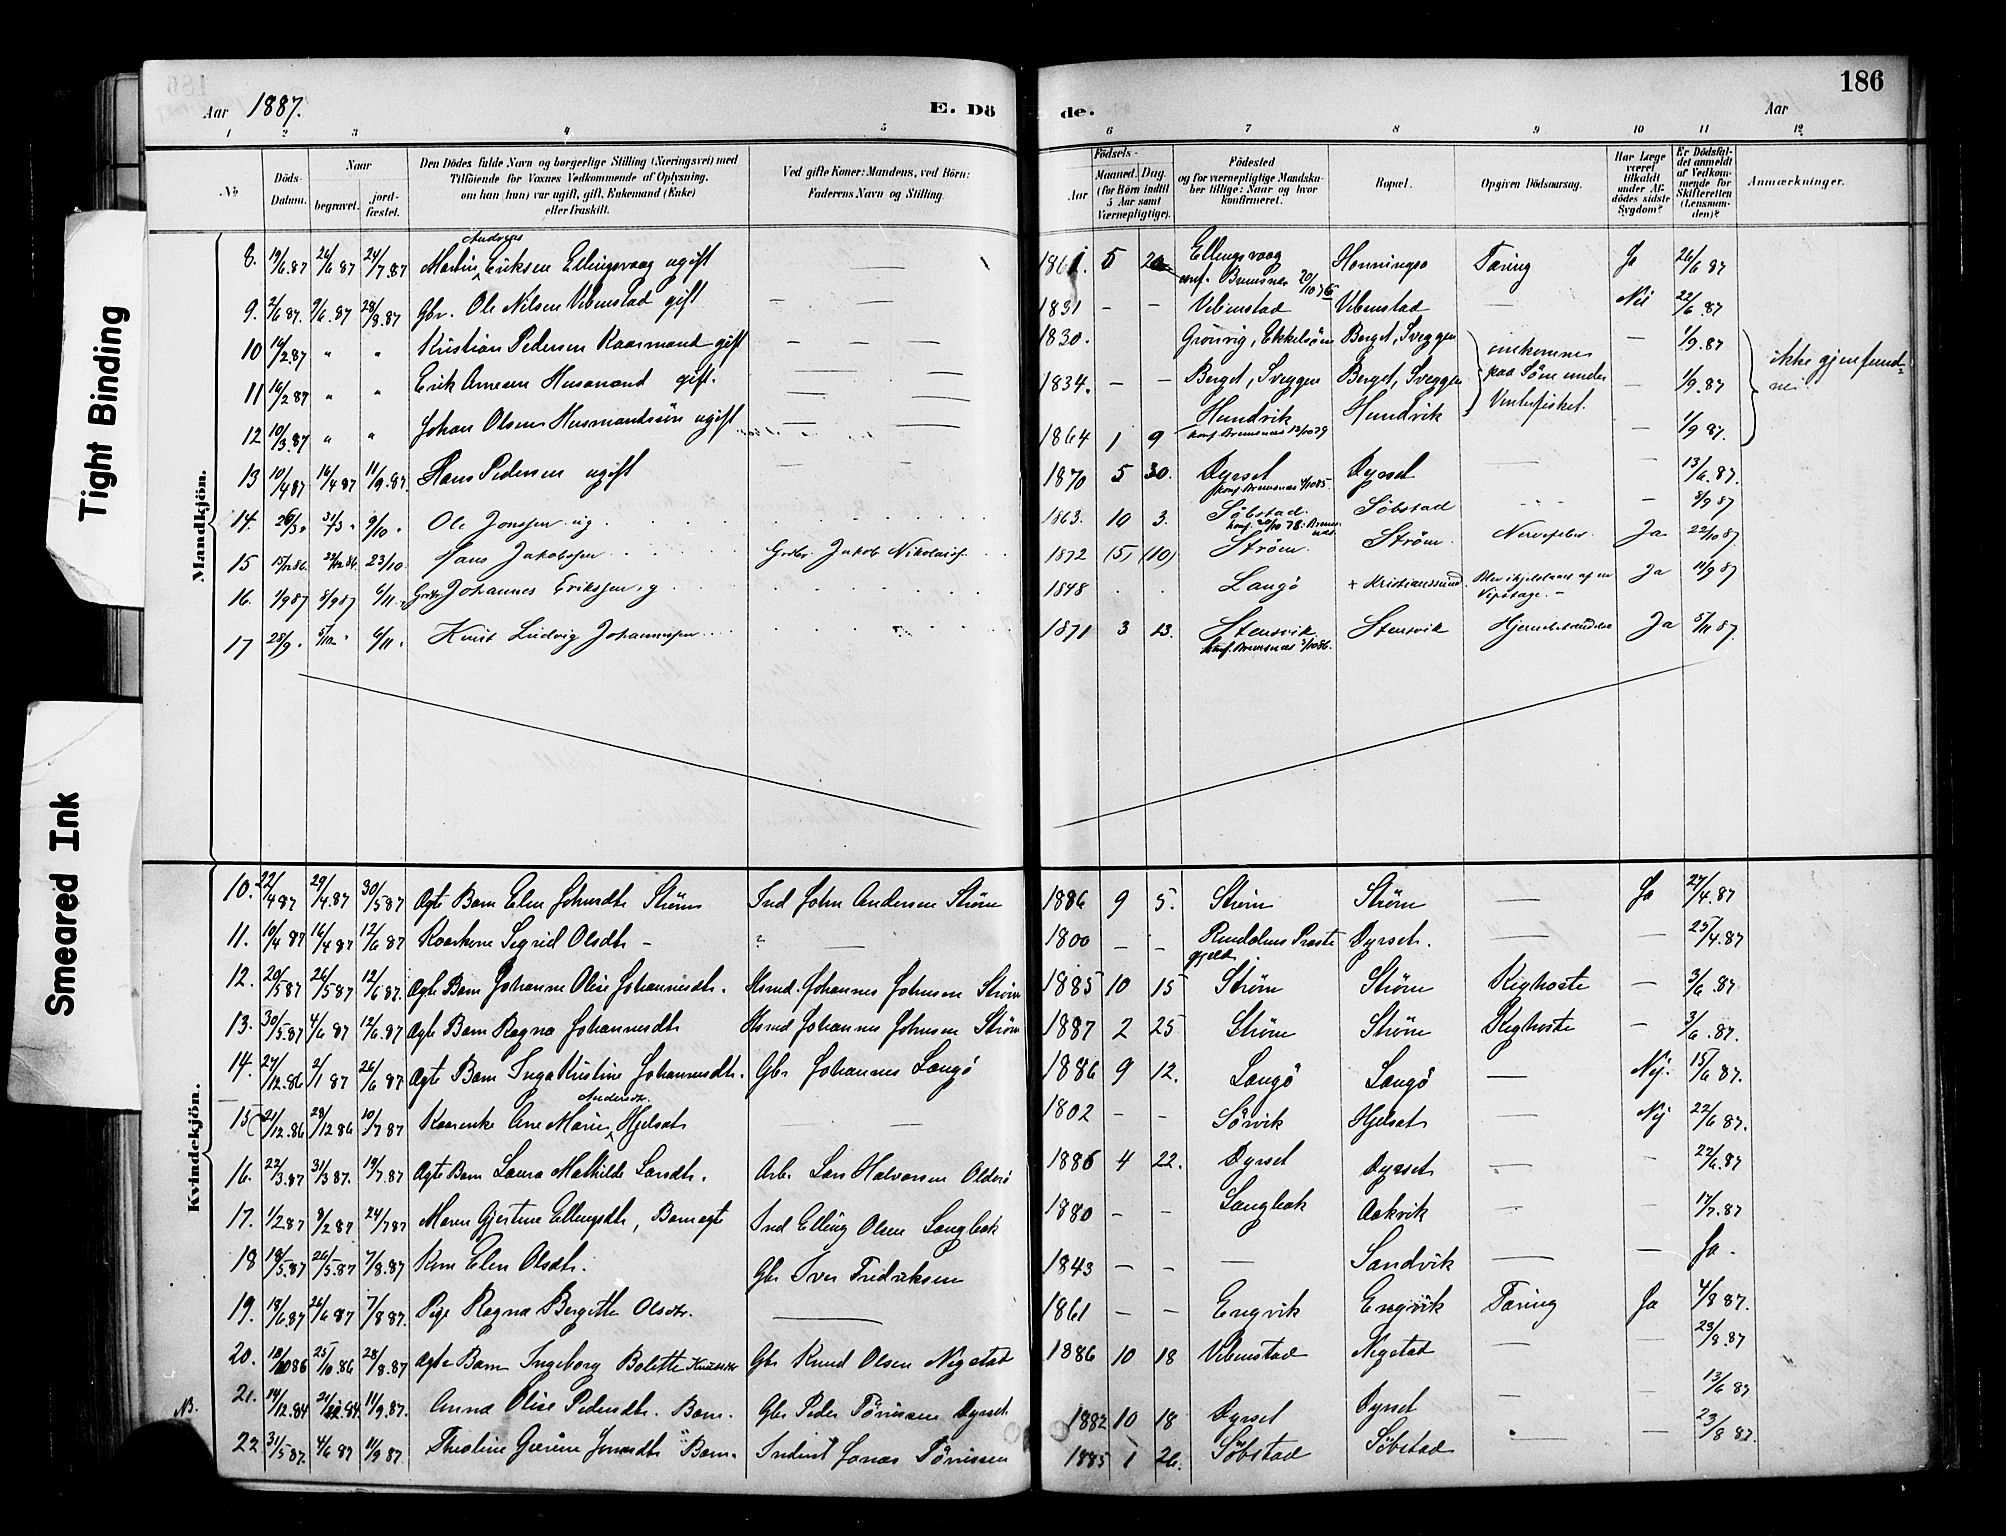 186
Aar 1887. E. Dö de. Aar
1 2 3 4 5 6 7 8 9 10 11 12
No
Döds-Datum.
Naar
begravet.
jord-fæstet.
Den Dödes fulde Navn og borgerlige Stilling (Næringsvei) med
Tilföiende for Voxnes Vedkommende af Oplysning,
om han (hun) var ugift, gift, Enkemand (Enke)
eller fraskilt.
Ved gifte Koner: Mandens, ved Börn:
Faderens Navn og Stilling.
Födsels-
Aar
Maaned. Dag.
(for Börn indtil
5 Aar samt
Værnepligtige).
Födested
og for værnepligtige Mandska-
ber tillige: Naar og hvor
konfirmeret.
Bopæl.
Opgiven Dödsaarsag.
Har Læge
været
tilkaldt
under Af-
dödes sidste
Sygdom?
Er Dödsfal-
det anmeldt
af Vedkom-
mende for
Skifteretten
(Lensman-
den)?
Anmærkninger.
Mandkjön.
8. 19/6.87 26/6 87 24/7.87 Martin Andreas Eriksen Ellingsvaag ugift 1861. 5 Ellingsvaag Honningsø Tæring Ja 26/6 87
conf. Bremsnes
9. 2/6 87. 9/6.87 28/8.87 Gbr. Ole Nilsen Vebenstad gift — — 1831 — — Vebenstad Vebenstad — Nei 22/6.87
10 16/2.87 " " Kristian Pedersen Kaarmand gift — — — 1830. Berget, Sveggen omkomne — 1/9.87 ikke gjenfund-
11 16/2 87 " " Erik Arnesen Husmand gift. — — 1834. — — Berget, Sveggen Berget, Sveggen paa Søen under — 1/9.87 ne
12 10/3.87 " " Johan Olsen Husmandssön ugift — — 1864 1 9 Hundvik Hundvik Vinterfisket. — 1/9 87.
konf. Bremsnes 12/10 79
13 10/4 87 16/4 87 11/9.87. Hans Pedersen ugift — — 1870 5 30. Dyrset Dyrset — — 13/6.87.
konf. Bremsnes 4/10 85.
14. 26/3 " 31/3 " 9/10 " Ole Jonssen ug 1863. 10 3. Söbstad Söbstad " " — 8/9 87
konf. 20/10 78. Bremsnes
15 15/12 86. 22/12 86. 23/10 Hans Jakobssen Grbr. Jakob Nikolaisen 1872 (5) (10) Strøm. Strøm. Nervefeber Ja 22/10 87.
16. 1/9 87 8/9 87 6/11. Grbr Johannes Erikssen, g 1848 Langö + Kristianssund. Blev ihjelslaaet af en Ja 11/9 87
17 28/9 " 5/10 " 6/11 " Knut Ludvig Johannessen 1871 3 13. Stensvik Stensvik Ja 5/11 87.
konf. Bremsnes 3/10 86.
Kvindekjön.
10. 22/4 87 29/4.87 30/5 87 Ægte Barn Elen Johnsdtr Strøm Ind John Andersen Strøm 1886 9 5. Strøm Strøm — Ja 27/4.87
11. 10/4 87 16/4 87 12/6 87 Kaarkone Sigrid Olsdtr — ? — 1800 — — Rendalens Præste Dyrset. — — 25/4.87
gjeld
12. 20/5 87 26/5 87 12/6 87. Ægte Barn Johanne Olise Johannesdtr. Hsmd. Johannes Johnsen Strøm 1885 10 15 Strøm Strøm Kighoste — 3/6.87
13. 30/5.87 4/6 87 12/6.87 Ægte Barn Ragna Johannesdtr Hsmd Johannes Johnsen Strøm 1887 2 25 Strøm Strøm Kighoste — 3/6.87.
14. 27/12.86 2/1 87 26/6 87 Ægte Barn Inga Kristine Johannesdtr. Gbr Johannes Langö 1886 9 12. Langö Langö — Nej. 15/6 87.
15 21/12.86 29/12 86 10/7 87 Kaarenke Ane Marie Andersdr. Hjelset — 1802 — — Sörvik Hjelset — Nej 22/6 87.
16. 22/3.87 31/3 87. 19/7.87 Ægte Barn Laura Mathilde Larsdtr. Arb. Lars Halvorsen Olderö 1886 4 22. Dyrset Dyrset — — 22/6.87
17. 1/2 87 8/2 87 24/7 87 Maren Gjertine Ellingsdtr, Barn ægte Ind Elling Olsen Langbak 1880 — — Langbak Aakvik — — 17/7.87
18 18/5.87 26/5.87 7/8.87 Kone Elen Olsdtr. Gbr Iver Fredriksen 1843 — — — Sandvik — — Ja.
19. 18/6.87 26/6 87 7/8 87. Pige Ragna Bergitte Olsdtr. — 1861 — — Engvik Engvik Tæring Ja 4/8 87.
20. 18/10 86 25/10.86 28/8.87 Ægte Barn Ingeborg Bolette Knudsdtr Gbr Knud Olsen Negstad 1886 10 18 Vebenstad Negstad — — 23/8.87
NB. 21. 14/12.84 21/12 84. 11/9.87. Anna Olise Pedersdtr. Barn. Gbr Peder Tönnesen Dyrset 1882 10 18 Dyrset Dyrset — — 13/6 87
22 31/5 87. 4/6 87 11/9 87. Jonasdtr Barn Inderst Jonas Tönnesen 1885 1 26. Söbstad Söbstad — — 23/8 87.
Tight Binding
Smeared Ink